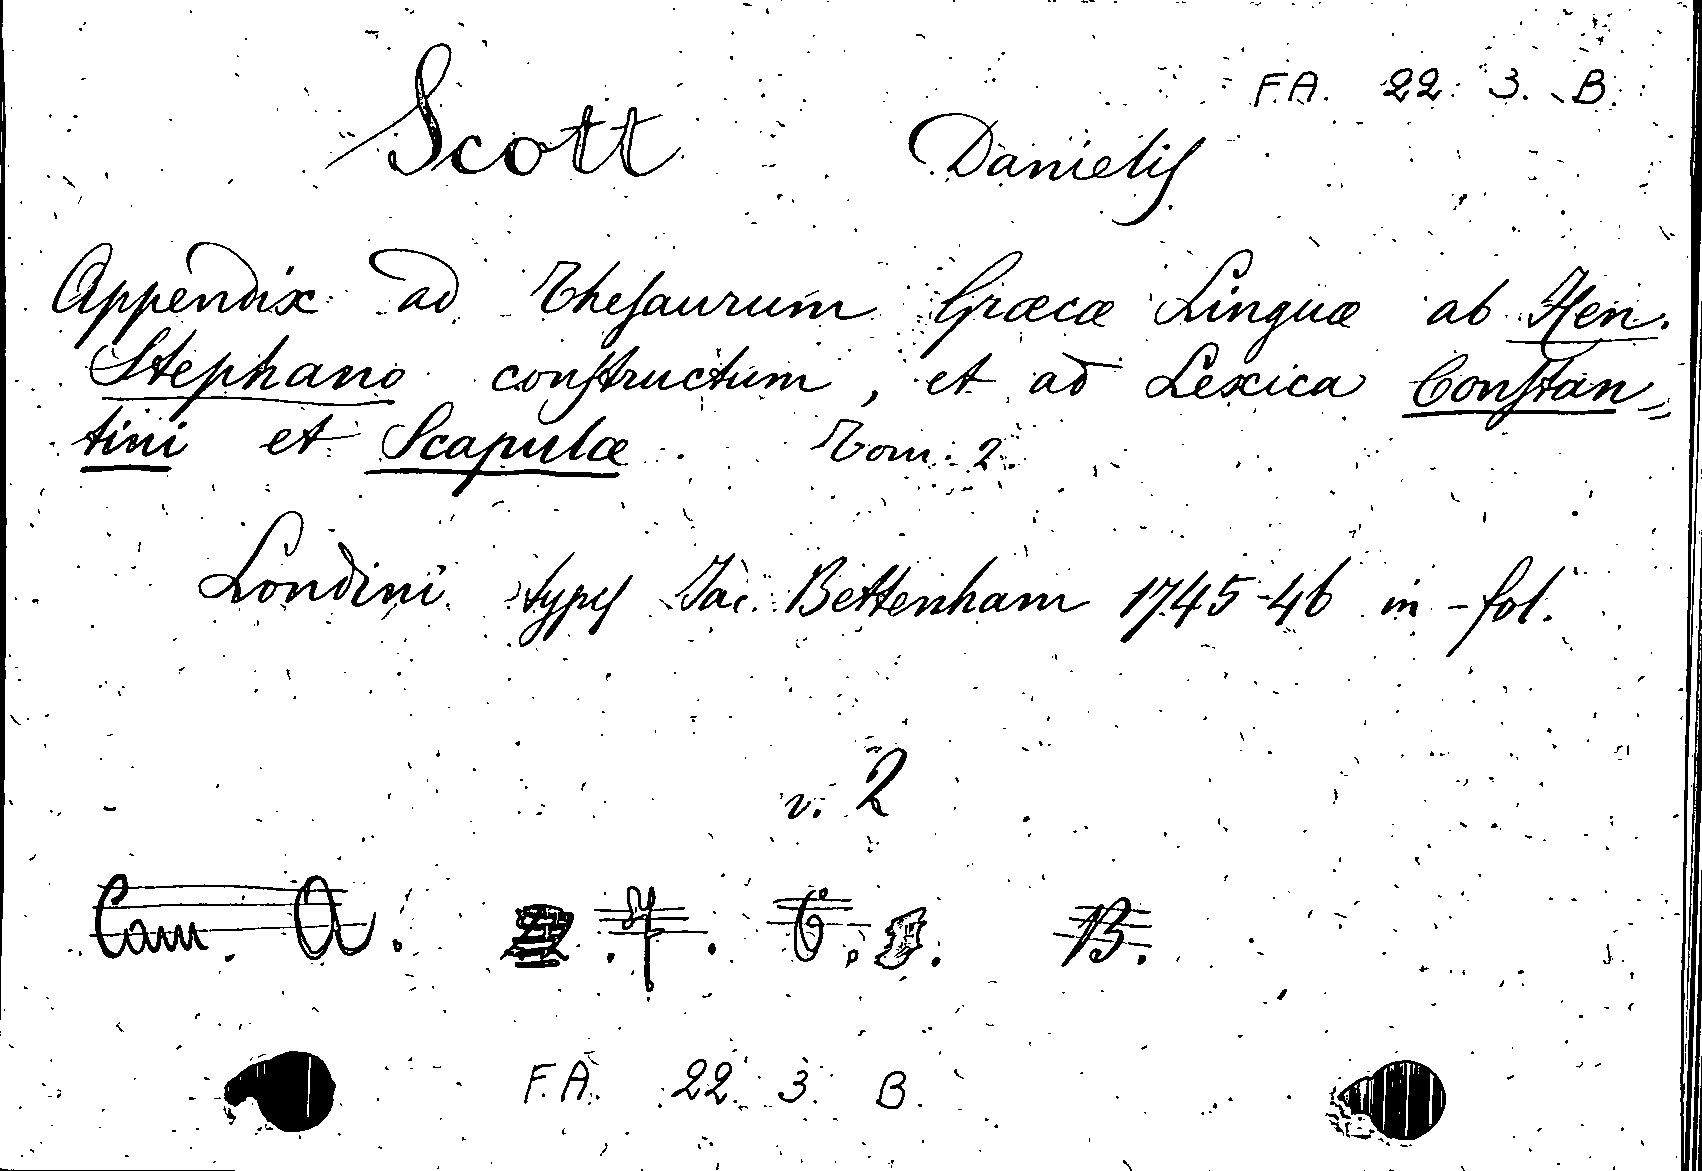 F.A. 22. 3. B.
Scott Danielis
Appendix ad Thesaurum Græcæ Linguæ ab Hen.
Stephano constructum, et ad Lexica Constan„
tini et Scapulæ. Tom. 2.
Londini typis Jac. Bettenham 1745-46 in-fol.
v. 2
Cam. A. B.
F.A. 22. 3. B.